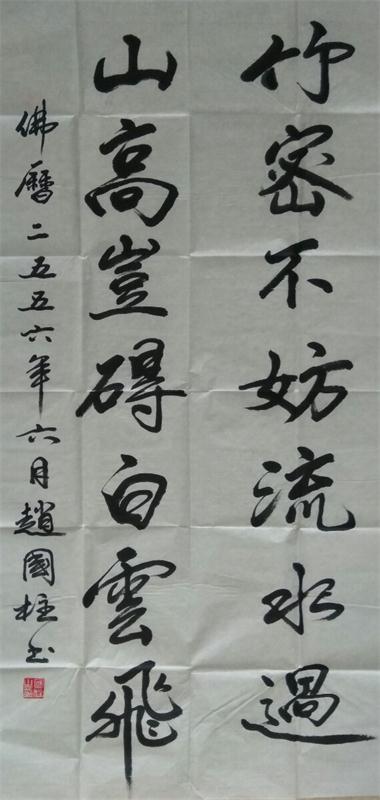 竹密不妨流水過
山高豈碍白雲飛
佛曆二五五六年六月趙國柱书